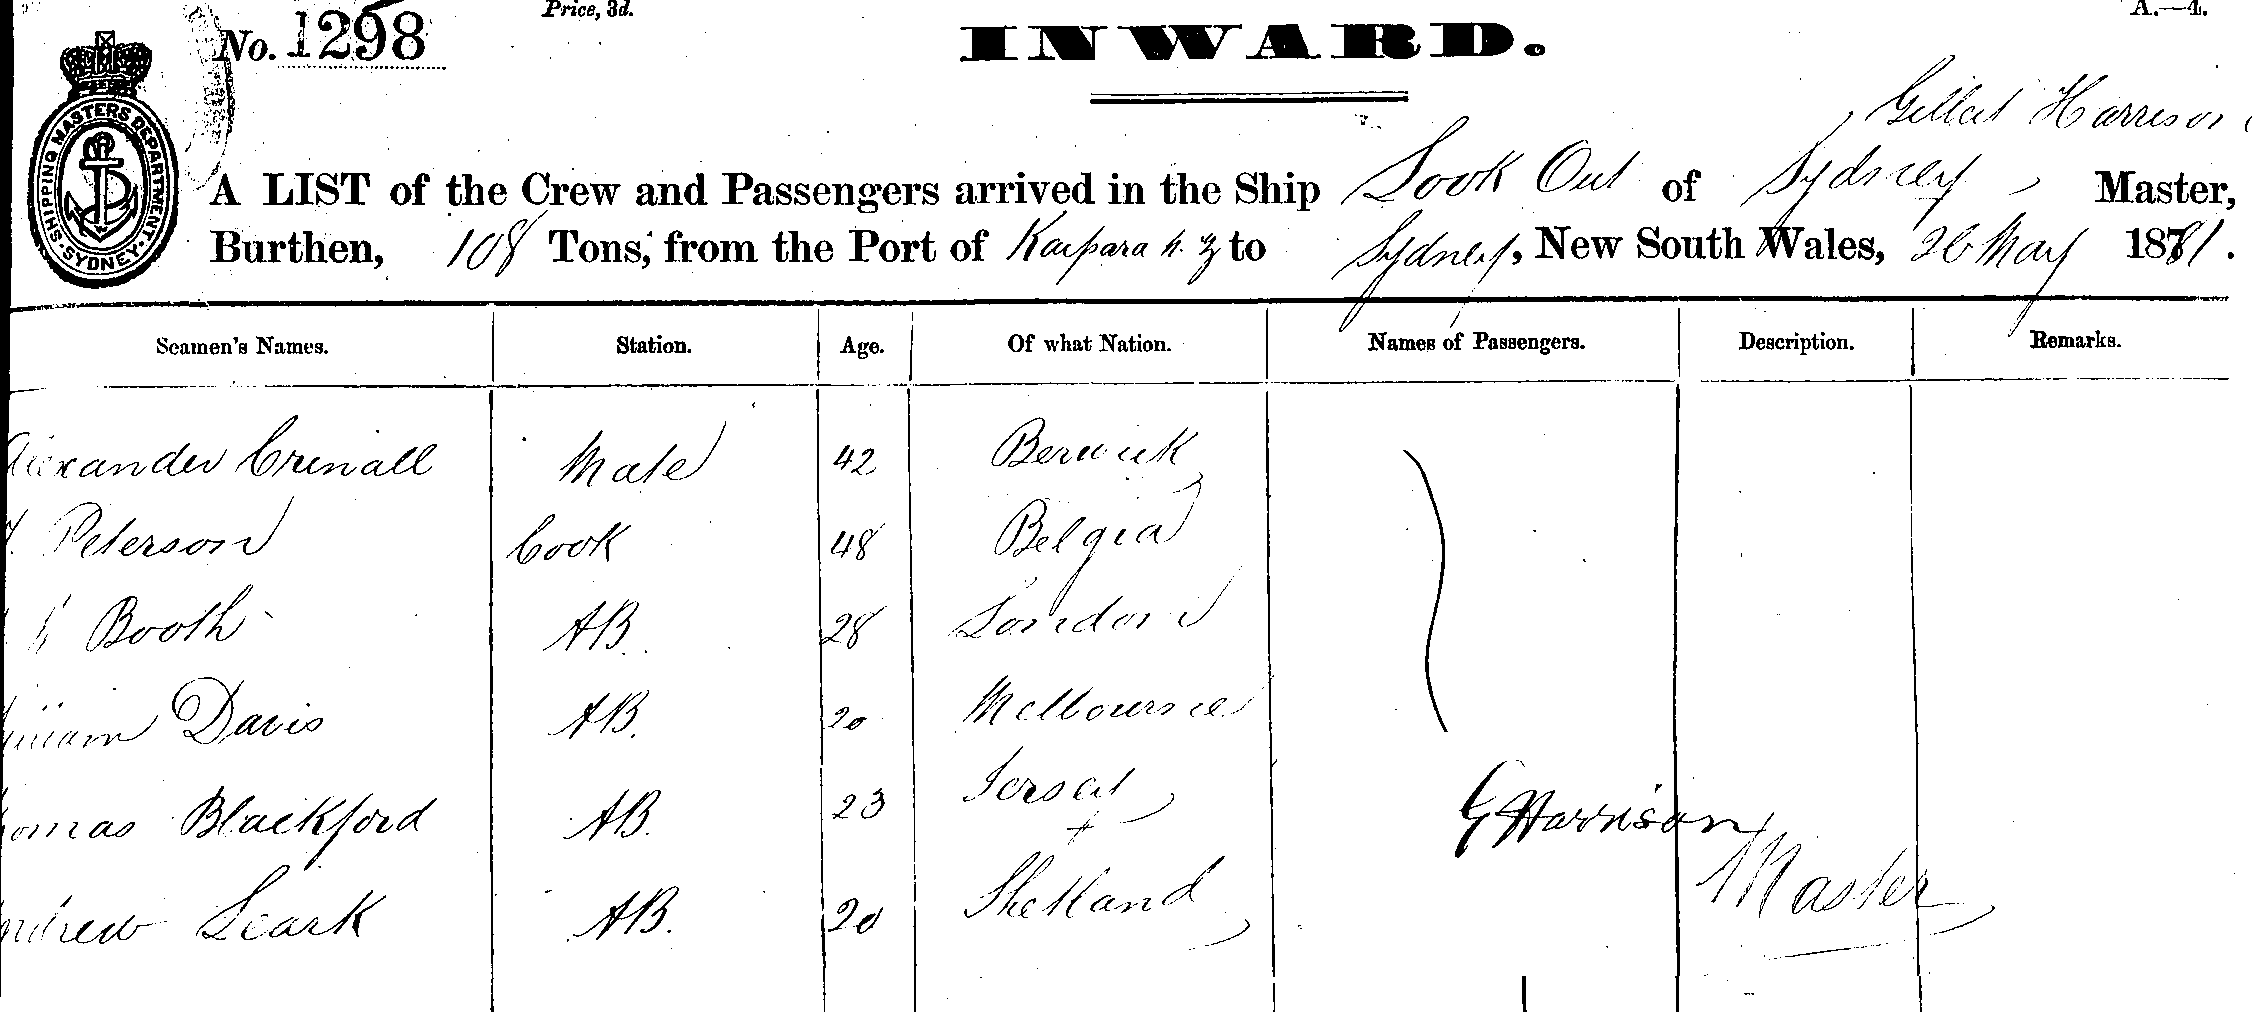 Price, 3d.
A.—4.
No. 1298
INWARD.
SHIPPING MASTERS DEPARTMENT. SYDNEY.
Gilbert Harrison
A LIST of the Crew and Passengers arrived in the Ship Look Out of Sydney, Master,
Burthen, 108 Tons, from the Port of Kaipara N. Z to Sydney, New South Wales, 26 May 1881.
Seamen's Names. Station. Age. Of what Nation. Names of Passengers. Description. Remarks.
Alexander Crinall Mate 42 Berwick
Peterson Cook 48 Belgia
Booth AB. 28 London
William Davis AB. 20 Melbourne
Thomas Blackford AB. 23
G Harrison
Master
Andrew Leark AB. 20 Shetland